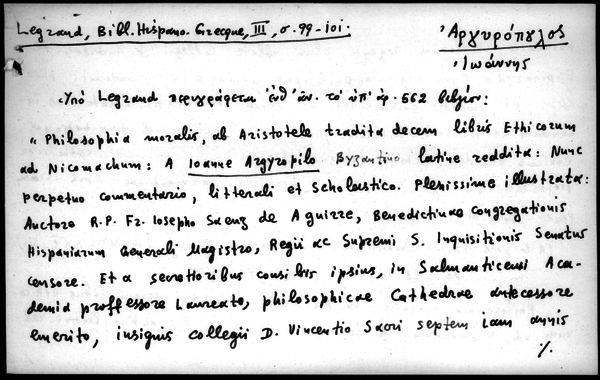 Legrand, Bibl. Hispano-Grecque, III, σ. 99-101.
Ἀργυρόπουλος
Ἰωάννης
Ὑπό Legrand περιγράφεται ἐνθ' ἀν. τό ὑπ' ἀρ. 562 βιβλίον:
« Philosophia moralis, ab Aristotele tradita decem libris Ethicorum
ad Nicomachum: A Ioanne Argyropilo Byzantino latine reddita: Nunc
perpetuo commentario, litterali et Scholastico. Plenissime illustrata:
Auctore R.P. Fr. Iosepho Saenz de Aguirre, Benedictinae congregationis
Hispaniarum Generali Magistro, Regii ac Supremi S. Inquisitionis Senatus
censore. Et a secretioribus consiliis ipsius, in Salmanticensi Aca-
demia proffessore Laureato, philosophicae Cathedrae antecessore
emerito, insignis collegii D. Vincentio Sacri septem iam annis
%.